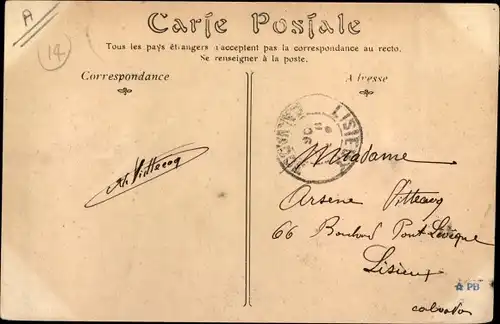 A
14
Carte Postale
Tous les pays étrangers n'acceptent pas la correspondance au recto.
Ne renseigner à la poste.
Correspondance
Adresse
LISIEUX
CALVADOS
Madame
Arsène Vittecoq
Vittecoq
66 Boulevard Pont Lévêque
Lisieux
PB
calvados